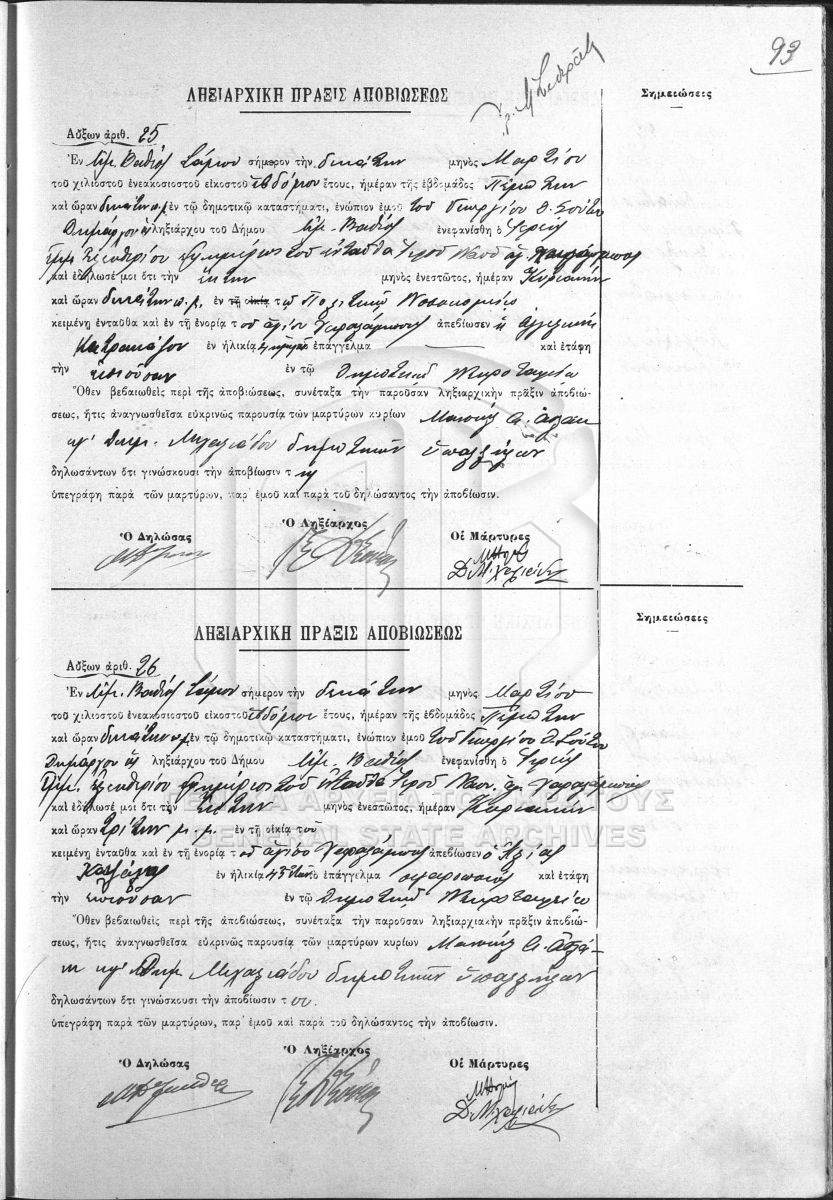 93
ΛΗΞΙΑΡΧΙΚΗ ΠΡΑΞΙΣ ΑΠΟΒΙΩΣΕΩΣ
Σημειώσεις
Αὔξων ἀριθ. 25
Ἐν Λιμ. Βαθέος Σάμου σήμερον τὴν δεκάτην μηνὸς Μαρτίου
τοῦ χιλιοστοῦ ἐνεακοσιοστοῦ εἰκοστοῦ ἑβδόμου ἔτους, ἡμέραν τῆς ἑβδομάδος Πέμπτην
καὶ ὥραν δεκάτην π.μ. ἐν τῷ δημοτικῷ καταστήματι, ἐνώπιον ἐμοῦ τοῦ Γεωργίου Δ. Σούτου
Δημάρχου ληξιάρχου τοῦ Δήμου Λιμ. Βαθέος ἐνεφανίσθη ὁ Ἱερεὺς
ἐφημέριος τοῦ ἐνταῦθα Ἱεροῦ Ναοῦ ἁγ. Χαραλάμπους
καὶ ἐδήλωσέ μοι ὅτι τὴν ἕκτην μηνὸς ἐνεστῶτος, ἡμέραν Κυριακὴν
καὶ ὥραν δεκάτην π.μ. ἐν τῇ οἰκίᾳ τῷ Πολιτικῷ Νοσοκομείῳ
κειμένῃ ἐνταῦθα καὶ ἐν τῇ ἐνορίᾳ τοῦ ἁγίου Χαραλάμπους ἀπεβίωσεν ἡ Ἀγγελικὴ
ἐν ἡλικίᾳ ἐπάγγελμα — καὶ ἐτάφη
τὴν ἐπιοῦσαν ἐν τῷ Δημοτικῷ Νεκροταφείῳ
Ὅθεν βεβαιωθεὶς περὶ τῆς ἀποβιώσεως, συνέταξα τὴν παροῦσαν ληξιαρχικὴν πρᾶξιν ἀποβιώ-
σεως, ἥτις ἀναγνωσθεῖσα εὐκρινῶς παρουσίᾳ τῶν μαρτύρων κυρίων Μανουὴλ
Μιχαλιάδου δημοτικῶν ὑπαλλήλων
δηλωσάντων ὅτι γινώσκουσι τὴν ἀποβίωσιν τῆς
ὑπεγράφη παρὰ τῶν μαρτύρων, παρ' ἐμοῦ καὶ παρὰ τοῦ δηλώσαντος τὴν ἀποβίωσιν.
Ὁ Δηλώσας Ὁ Ληξίαρχος Οἱ Μάρτυρες
ΛΗΞΙΑΡΧΙΚΗ ΠΡΑΞΙΣ ΑΠΟΒΙΩΣΕΩΣ
Σημειώσεις
Αὔξων ἀριθ. 26
Ἐν Λιμ. Βαθέος Σάμου σήμερον τὴν δεκάτην μηνὸς Μαρτίου
τοῦ χιλιοστοῦ ἐνεακοσιοστοῦ εἰκοστοῦ ἑβδόμου ἔτους, ἡμέραν τῆς ἑβδομάδος Πέμπτην
καὶ ὥραν δεκάτην π.μ. ἐν τῷ δημοτικῷ καταστήματι, ἐνώπιον ἐμοῦ τοῦ Γεωργίου Δ. Σούτου
Δημάρχου ληξιάρχου τοῦ Δήμου Λιμ. Βαθέος ἐνεφανίσθη ὁ Ἱερεὺς
ἐφημέριος τοῦ ἐνταῦθα Ἱεροῦ Ναοῦ ἁγ. Χαραλάμπους
καὶ ἐδήλωσέ μοι ὅτι τὴν ἕκτην μηνὸς ἐνεστῶτος, ἡμέραν Κυριακὴν
καὶ ὥραν τρίτην μ.μ. ἐν τῇ οἰκίᾳ του
κειμένῃ ἐνταῦθα καὶ ἐν τῇ ἐνορίᾳ τοῦ ἁγίου Χαραλάμπους ἀπεβίωσεν ὁ Ἠλίας
ἐν ἡλικίᾳ 43 ἐτῶν ἐπάγγελμα καὶ ἐτάφη
τὴν ἐπιοῦσαν ἐν τῷ Δημοτικῷ Νεκροταφείῳ
Ὅθεν βεβαιωθεὶς περὶ τῆς ἀποβιώσεως, συνέταξα τὴν παροῦσαν ληξιαρχιακὴν πρᾶξιν ἀποβιώ-
σεως, ἥτις ἀναγνωσθεῖσα εὐκρινῶς παρουσίᾳ τῶν μαρτύρων κυρίων Μανουὴλ
Μιχαλιάδου δημοτικῶν ὑπαλλήλων
δηλωσάντων ὅτι γινώσκουσι τὴν ἀποβίωσιν του.
ὑπεγράφη παρὰ τῶν μαρτύρων, παρ' ἐμοῦ καὶ παρὰ τοῦ δηλώσαντος τὴν ἀποβίωσιν.
Ὁ Δηλώσας Ὁ Ληξίαρχος Οἱ Μάρτυρες
GENERAL STATE ARCHIVES